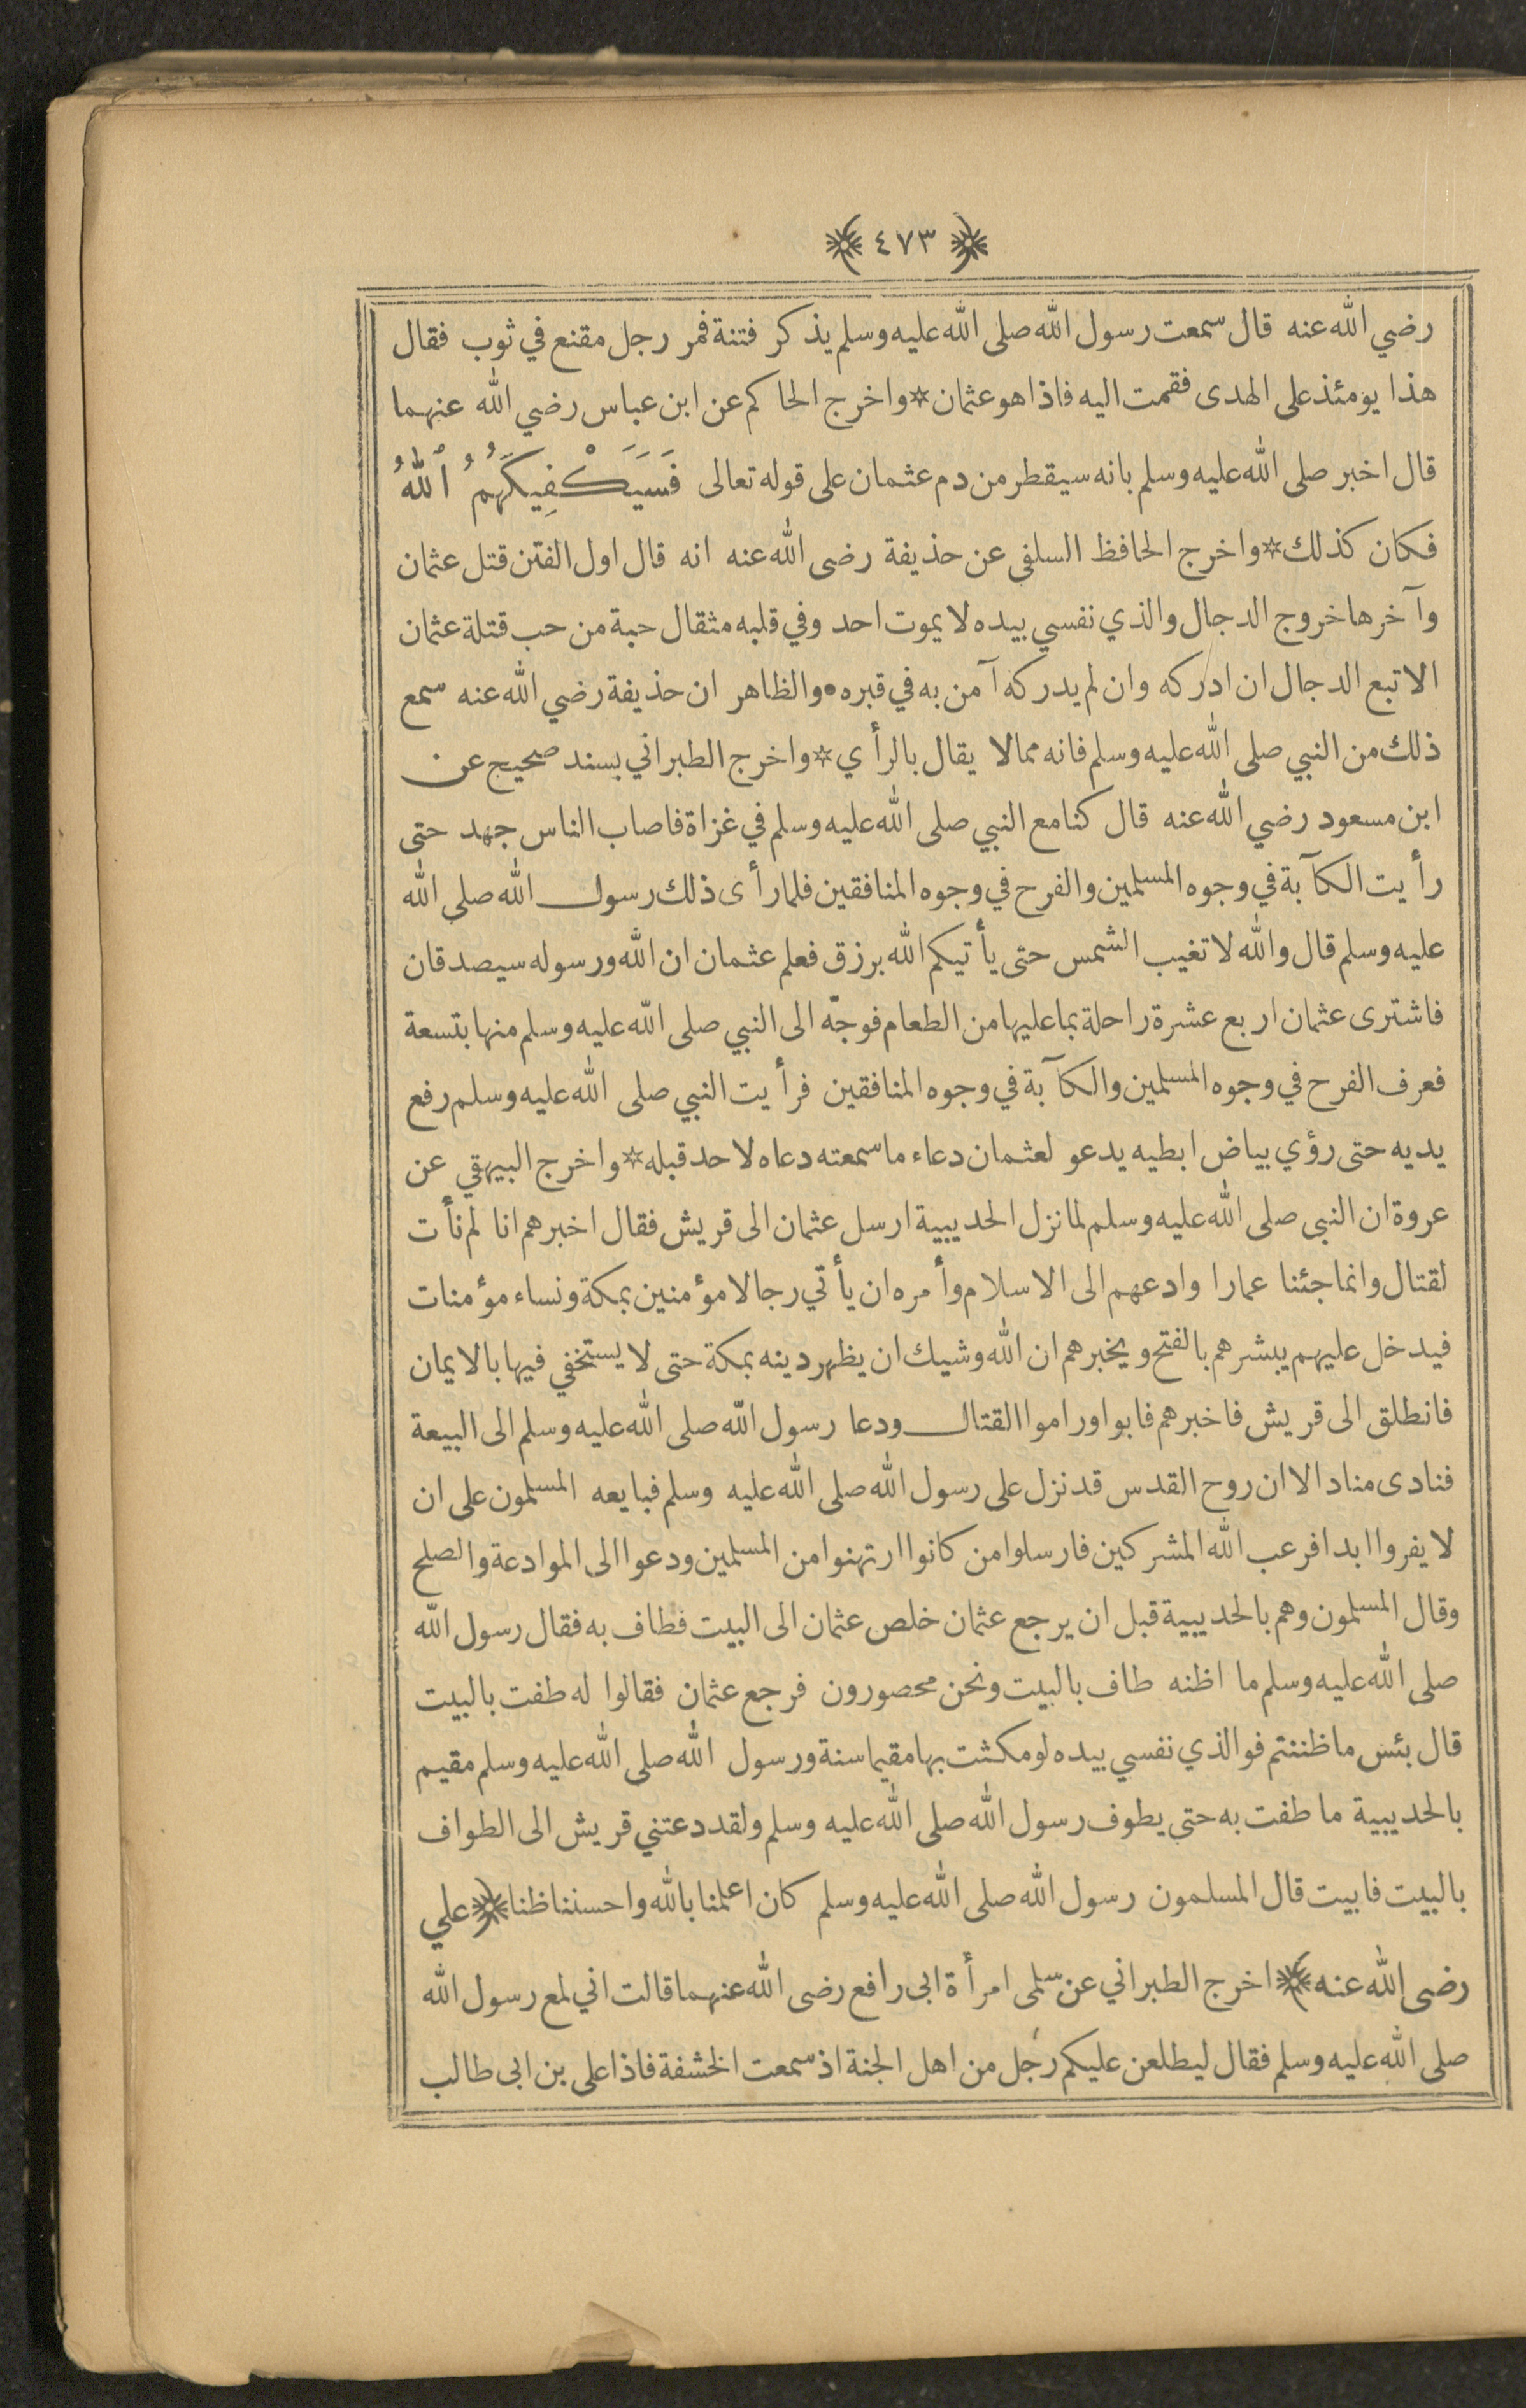 ﴿ ٤٧٣ ﴾
رضي الله عنه قال سمعت رسول الله صلى الله عليه وسلم يذكر فتنة فمر رجل مقنع في ثوب فقال
هذا يومئذ على الهدى فقمت اليه فاذا هو عثمان * واخرج الحاكم عن ابن عباس رضي الله عنهما
قال اخبر صلى الله عليه وسلم بانه سيقطر من دم عثمان على قوله تعالى فَسَيَكْفِيكَهُمُ ٱللهُ
فكان كذلك * واخرج الحافظ السلفي عن حذيفة رضى الله عنه انه قال اول الفتن قتل عثمان
وآخرها خروج الدجال والذي نفسي بيده لا يموت احد وفي قلبه مثقال حبة من حب قتلة عثمان
الا تبع الدجال ان ادركه وان لم يدركه آمن به في قبره • والظاهر ان حذيفة رضي الله عنه سمع
ذلك من النبي صلى الله عليه وسلم فانه مما لا يقال بالرأي * واخرج الطبراني بسند صحيح عن
ابن مسعود رضي الله عنه قال كنا مع النبي صلى الله عليه وسلم في غزاة فاصاب الناس جهد حتى
رأيت الكآبة في وجوه المسلمين والفرح في وجوه المنافقين فلما رأى ذلك رسول الله صلى الله
عليه وسلم قال والله لا تغيب الشمس حتى يأتيكم الله برزق فعلم عثمان ان الله ورسوله سيصدقان
فاشترى عثمان اربع عشرة راحلة بما عليها من الطعام فوجّه الى النبي صلى الله عليه وسلم منها بتسعة
فعرف الفرح في وجوه المسلمين والكآبة في وجوه المنافقين فرأيت النبي صلى الله عليه وسلم رفع
يديه حتى رؤي بياض ابطيه يدعو لعثمان دعاء ما سمعته دعاه لاحد قبله * واخرج البيهقي عن
عروة ان النبى صلى الله عليه وسلم لما نزل الحديبية ارسل عثمان الى قريش فقال اخبرهم انا لم نأت
لقتال وانما جئنا عمارا وادعهم الى الاسلام وأمره ان يأتي رجالا مؤمنين بمكة ونساء مؤمنات
فيدخل عليهم يبشرهم بالفتح ويخبرهم ان الله وشيك ان يظهر دينه بمكة حتى لا يستخفي فيها بالايمان
فانطلق الى قريش فاخبرهم فابوا وراموا القتال ودعا رسول الله صلى الله عليه وسلم الى البيعة
فنادى مناد الا ان روح القدس قد نزل على رسول الله صلى الله عليه وسلم فبايعه المسلمون على ان
لا يفروا ابدا فرعب الله المشركين فارسلوا من كانوا ارتهنوا من المسلمين ودعوا الى الموادعة والصلح
وقال المسلمون وهم بالحديبية قبل ان يرجع عثمان خلص عثمان الى البيت فطاف به فقال رسول الله
صلى الله عليه وسلم ما اظنه طاف بالبيت ونحن محصورون فرجع عثمان فقالوا له طفت بالبيت
قال بئس ما ظننتم فوالذي نفسي بيده لو مكثت بها مقيما سنة ورسول الله صلى الله عليه وسلم مقيم
بالحديبية ما طفت به حتى يطوف رسول الله صلى الله عليه وسلم ولقد دعتني قريش الى الطواف
بالبيت فابيت قال المسلمون رسول الله صلى الله عليه وسلم كان اعلمنا بالله واحسننا ظنا ﴿ علي
رضى الله عنه ﴾ اخرج الطبراني عن سلمى امرأة ابى رافع رضى الله عنهما قالت اني لمع رسول الله
صلى الله عليه وسلم فقال ليطلعن عليكم رجل من اهل الجنة اذ سمعت الخشفة فاذا على بن ابى طالب